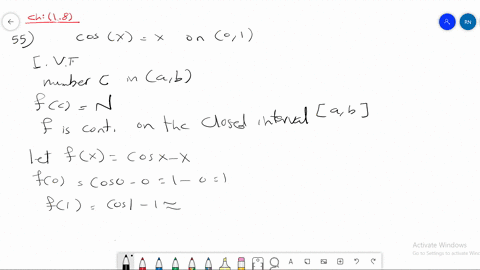 ch:(1.8)
55) cos(x) = x on (0,1)
I.V.F
number C in (a,b)
f(c) = N
f is cont. on the closed interval [a,b]
let f(x) = cosx-x
f(0) = cos0 - 0 = 1 - 0 = 1
f(1) = cos1 - 1 ≈
RN
Activate Windows
Go to Settings to activate Windows.